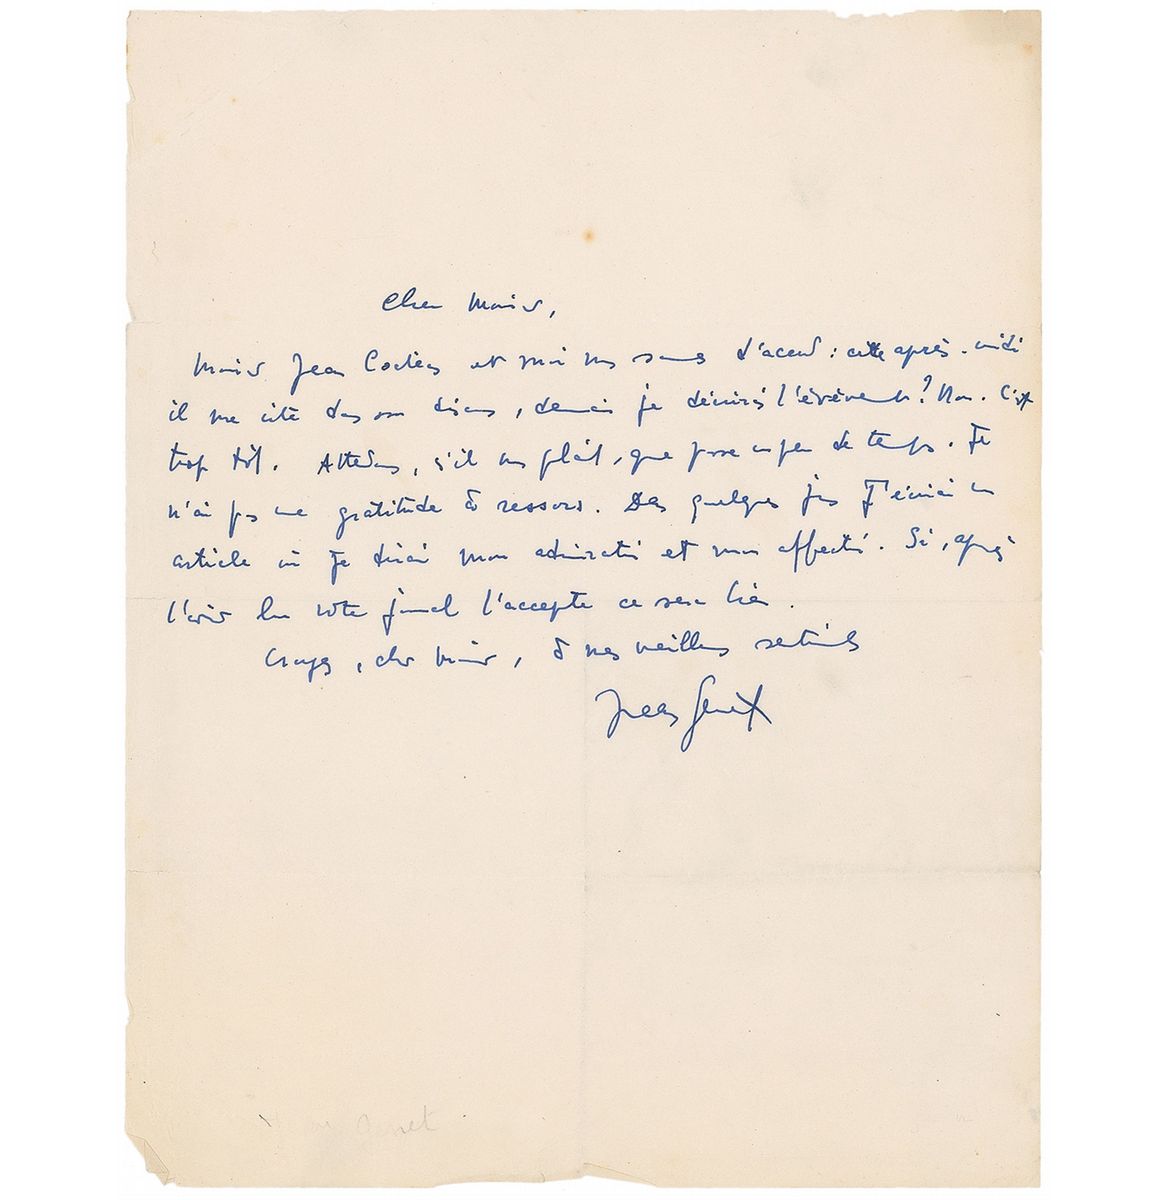 Cher Monsieur,
Jean Cocteau et moi nous sommes d'accord : cette après-midi
il me cite dans son discours, demain je décrirai l'évènement? Non. C'est
trop tôt. Attendons, s'il vous plaît, que passe un peu de temps. Je
n'ai pas une gratitude à ressorts. Dans quelques jours j'écrirai un
article où je dirai mon admiration et mon affection. Si, après
l'avoir lu votre journal l'accepte ce sera bien.
Croyez, cher Monsieur, à mes meilleurs sentiments
Jean Genet
Genet